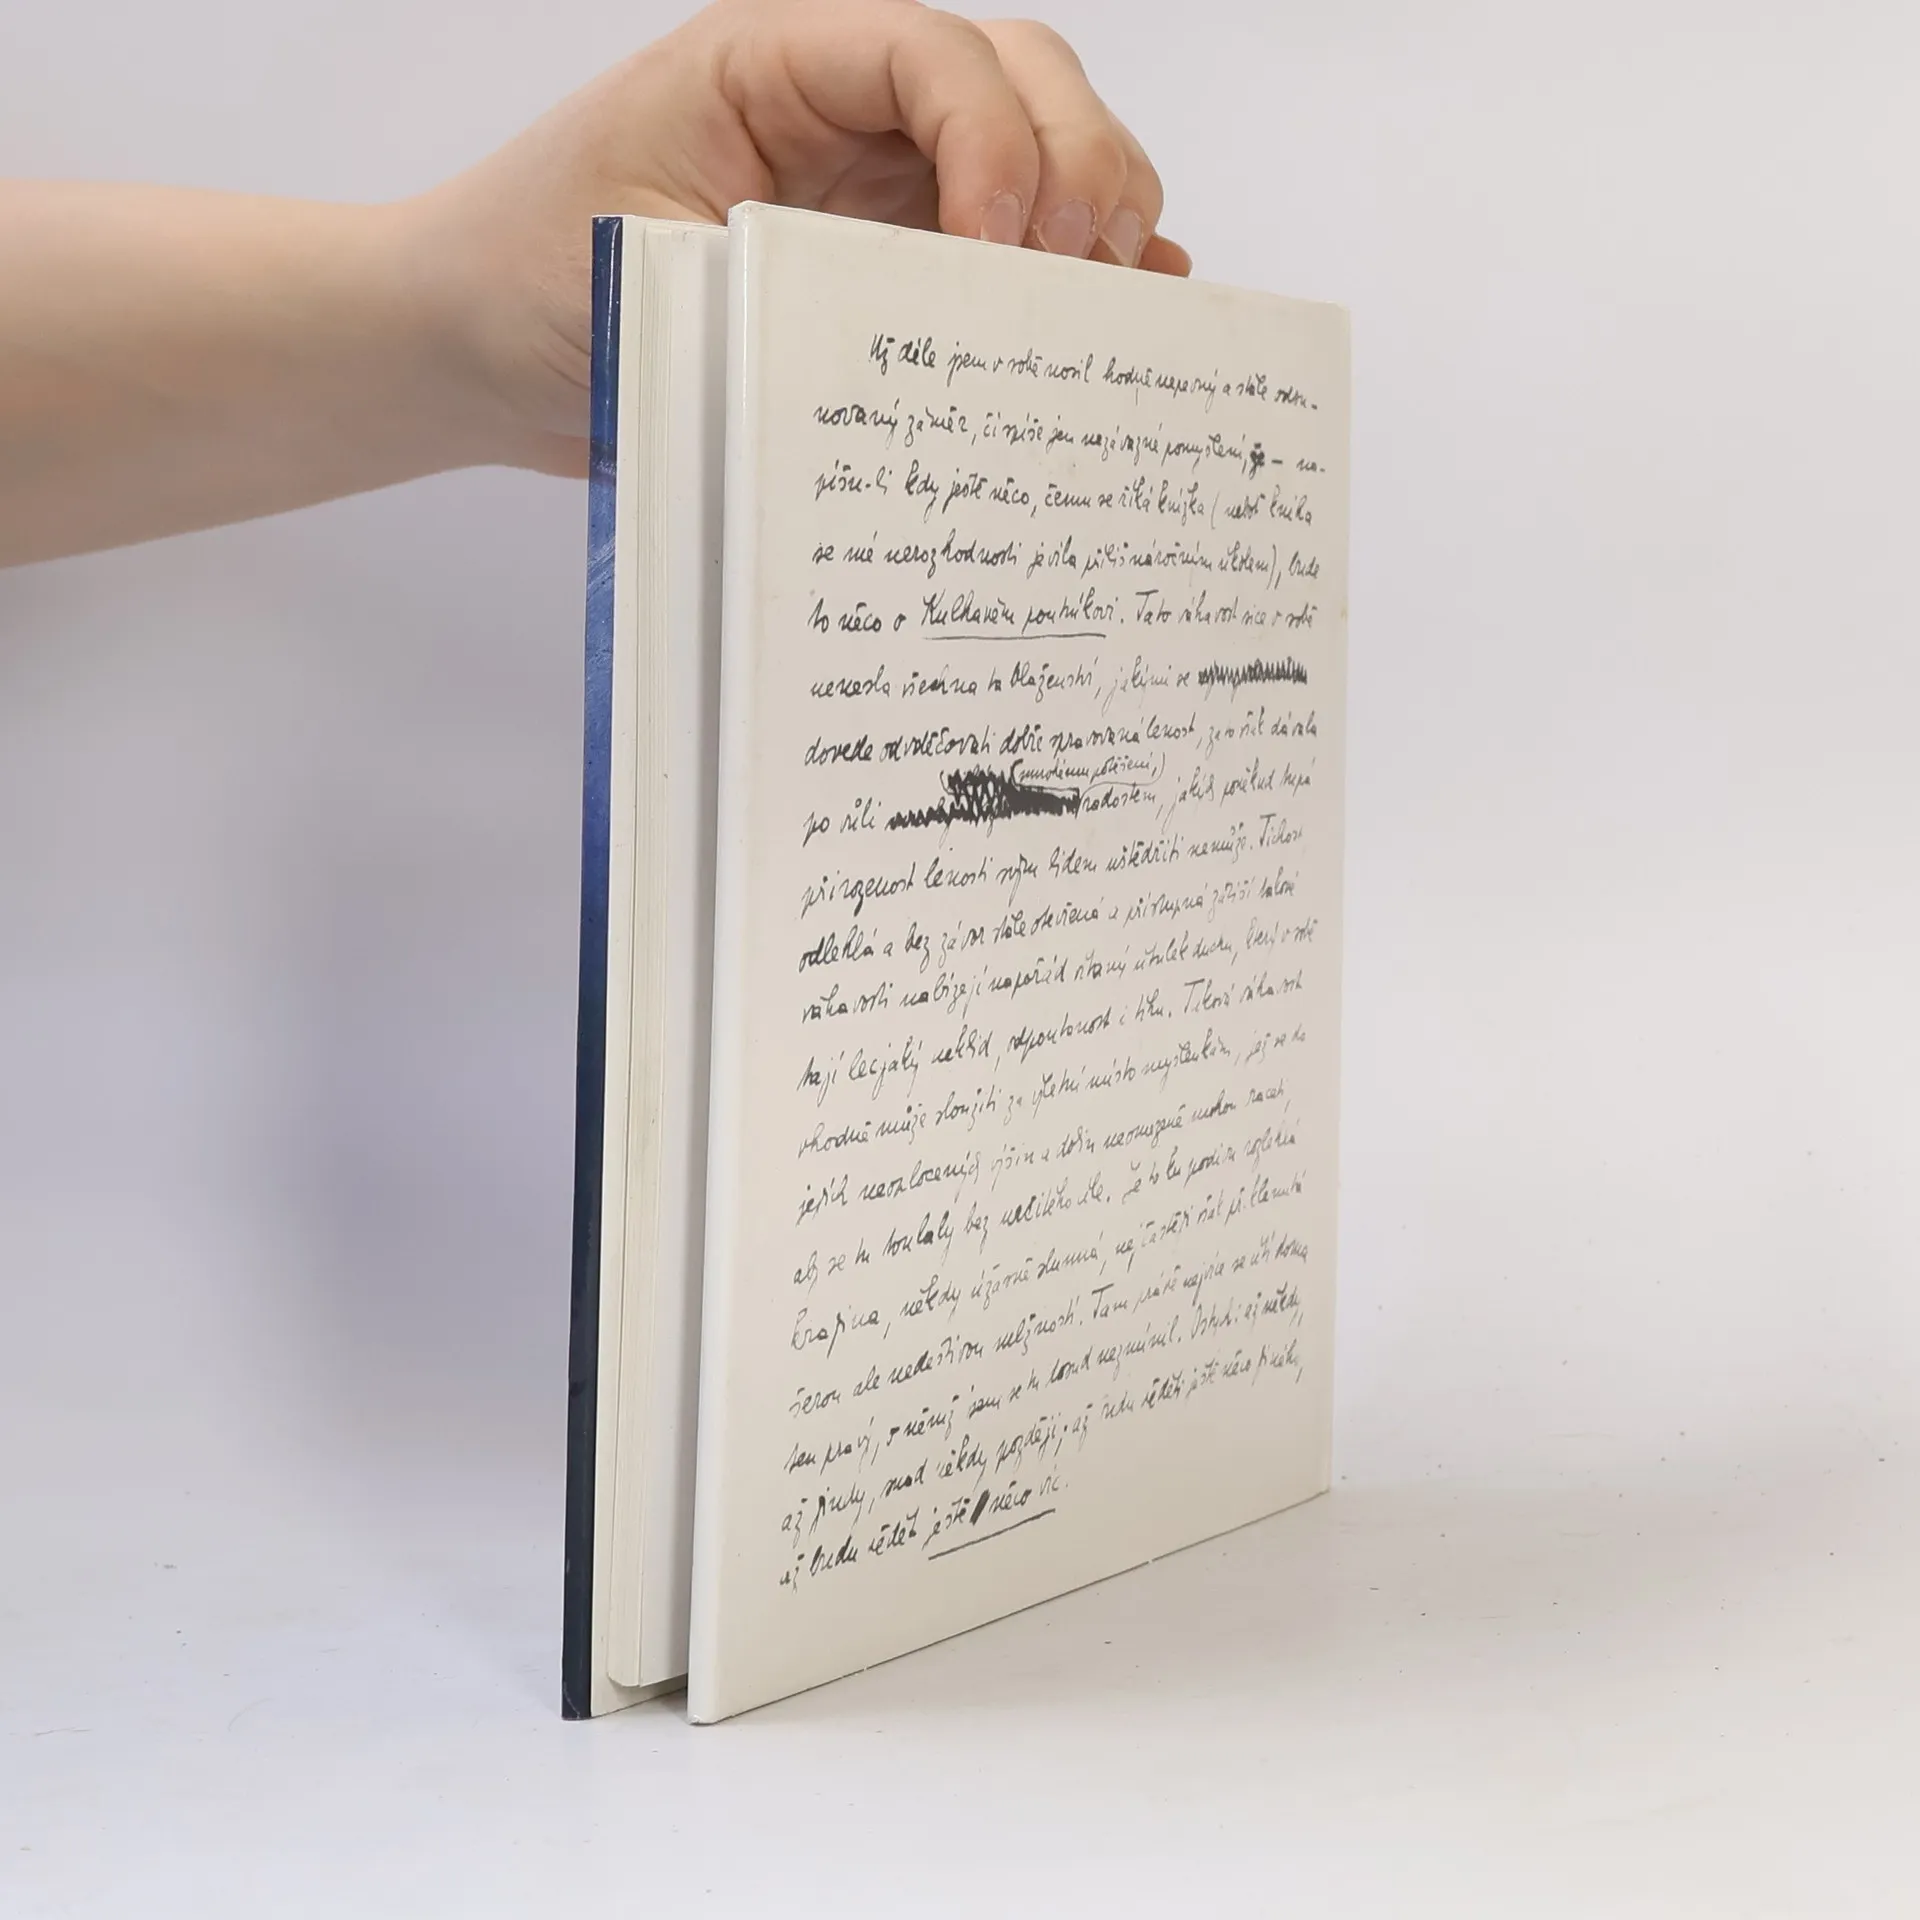 Už déle jsem v sobě nosil hodně nepevný a stále odsu-
novaný záměr, či spíše jen nezávazné pomyšlení, že – na-
píšu-li kdy ještě něco, čemu se říká knížka (neboť kniha
se mé nerozhodnosti jevila příliš náročným úkolem), bude
to něco o Kulhavém poutníkovi. Tato váhavost sice v sobě
nenesla všechna ta blaženství, jakými se
dovede odvděčovati dobře spravovaná lenost, zato však dávala
po vůli (mnohému potěšení,)
radostem, jakých poněkud tupá
přirozenost lenosti svým lidem uštědřiti nemůže. Tichost
odlehlá a bez závor stále otevřená a přístupná zátiší takové
váhavosti nabízejí napořád vítaný útulek duchu, který v sobě
tají lecjaký neklid, odpoutanost i tíhu. Taková váhavost
vhodně může sloužiti za výletní místo myšlenkám, jež se do
jejích neoplocených výšin a dolin neomezeně mohou raceti,
aby se tu toulaly bez určitého cíle. Je to tu podivu rozlehlá
krajina, někdy úžasně slunná, nejčastěji však přiklenutá
šerou ale nedeštivou mlžností. Tam právě nejvíce se cítí doma
ten pravý, o němž jsem se tu dosud nezmínil. Ostych: až někdy,
až jindy, snad někdy později; až budu věděti ještě něco jiného,
až budu vědět ještě něco víc.